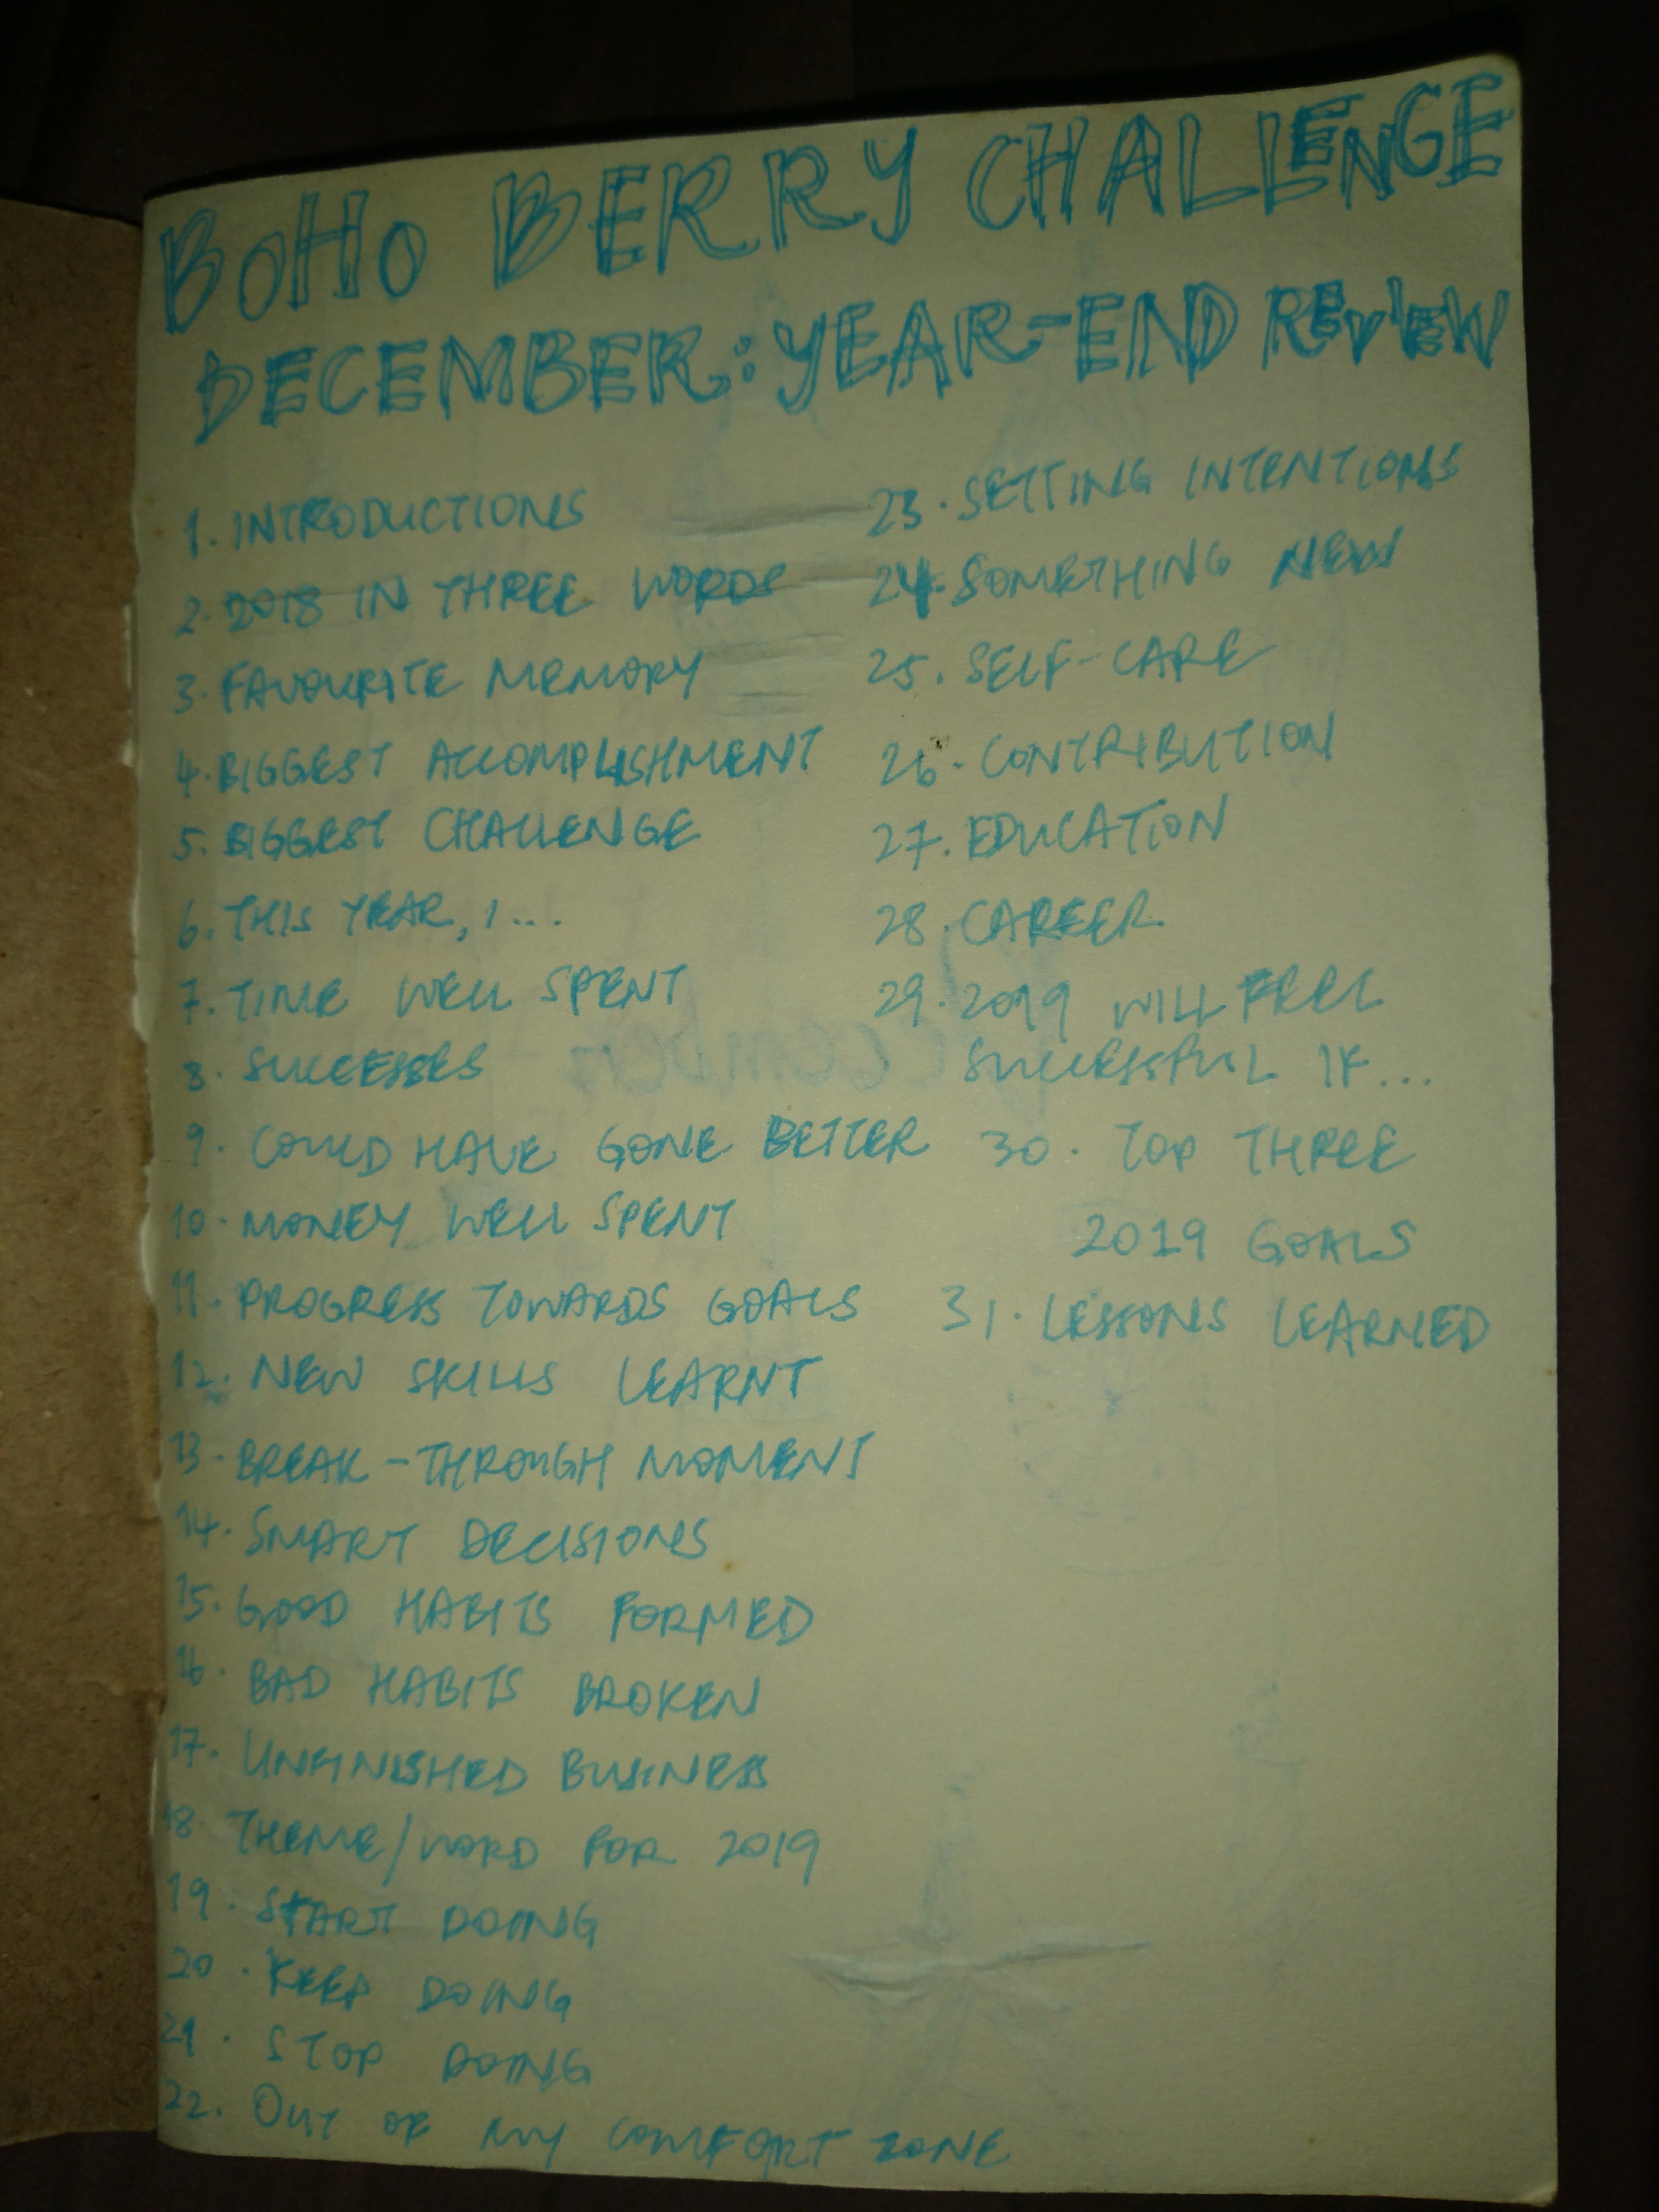 BOHO BERRY CHALLENGE
DECEMBER: YEAR-END REVIEW
1. INTRODUCTIONS
2. 2018 IN THREE WORDS
3. FAVOURITE MEMORY
4. BIGGEST ACCOMPLISHMENT
5. BIGGEST CHALLENGE
6. THIS YEAR, I ...
7. TIME WELL SPENT
8. SUCCESSES
9. COULD HAVE GONE BETTER
10. MONEY WELL SPENT
11. PROGRESS TOWARDS GOALS
12. NEW SKILLS LEARNT
13. BREAK-THROUGH MOMENT
14. SMART DECISIONS
15. GOOD HABITS FORMED
16. BAD HABITS BROKEN
17. UNFINISHED BUSINESS
18. THEME/WORD FOR 2019
19. START DOING
20. KEEP DOING
21. STOP DOING
22. OUT OF MY COMFORT ZONE
23. SETTING INTENTIONS
24. SOMETHING NEW
25. SELF-CARE
26. CONTRIBUTION
27. EDUCATION
28. CAREER
29. 2019 WILL FEEL
SUCCESSFUL IF...
30. TOP THREE
2019 GOALS
31. LESSONS LEARNED